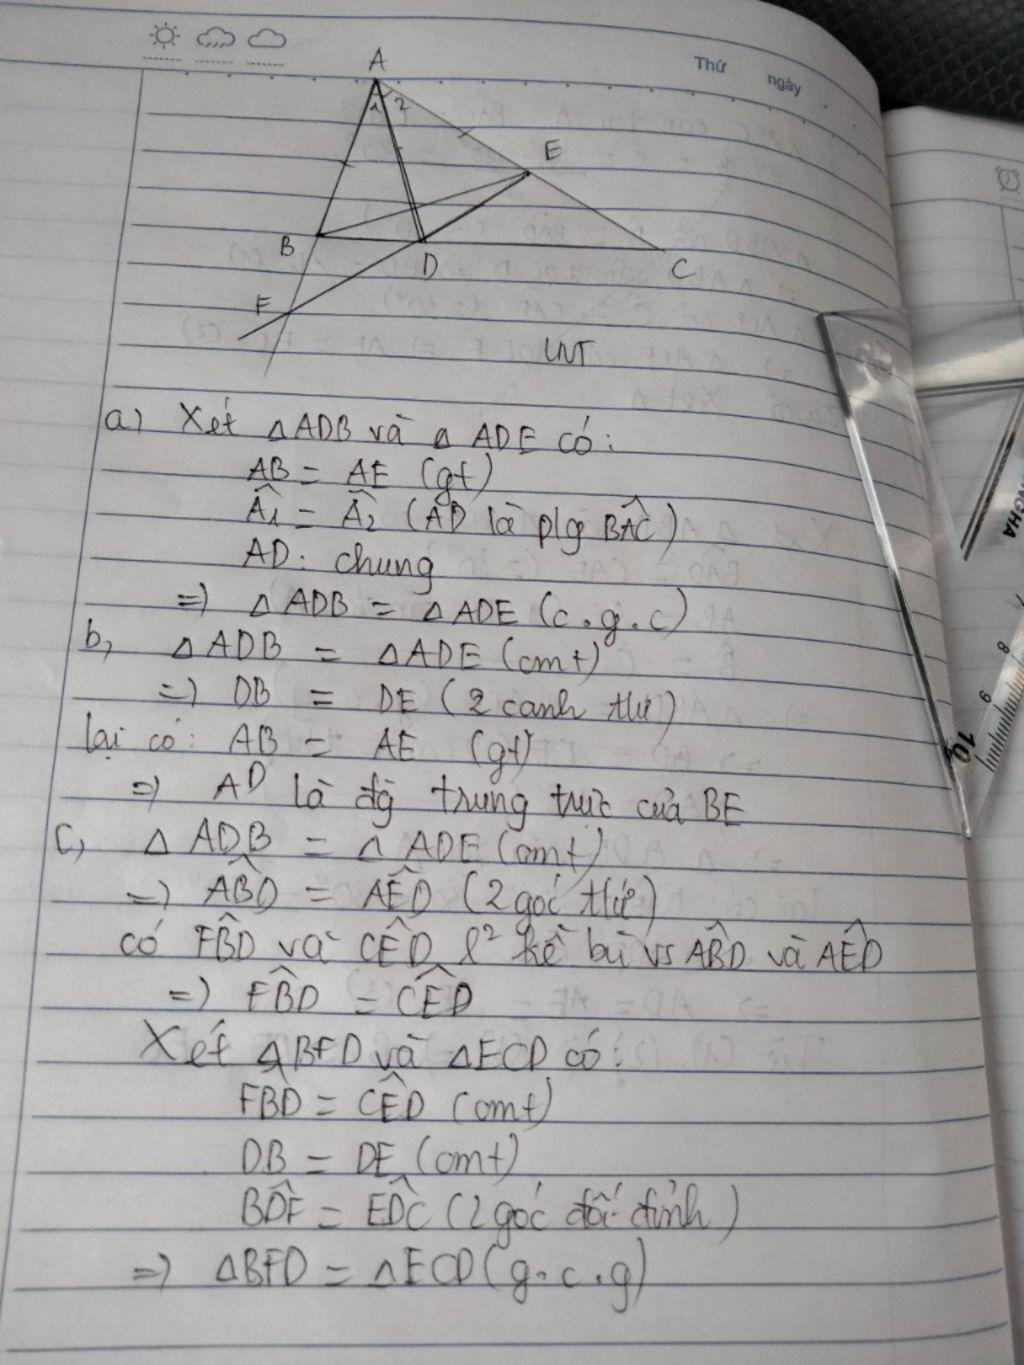 Thứ ngày
A
1 2
E
B
D
C
F
LNT
a) Xét △ADB và △ADE có:
AB = AE (gt)
Â1 = Â2 (AD là plg BÂC)
AD: chung
=) △ADB = △ADE (c.g.c)
b, △ADB = △ADE (cmt)
=) DB = DE (2 canh thư)
lại có: AB = AE (gt)
=) AD là đg trung trực của BE
C, △ADB = △ADE (cmt)
=) AB̂D = AÊD (2 góc thư)
có FB̂D và CÊD l² kề bù vs AB̂D và AÊD
=) FB̂D = CÊD
Xét △BFD và △ECD có:
FB̂D = CÊD (cmt)
DB = DE (cmt)
BD̂F = ED̂C (2 góc đối đỉnh)
=) △BFD = △ECD (g.c.g)
8
9
10